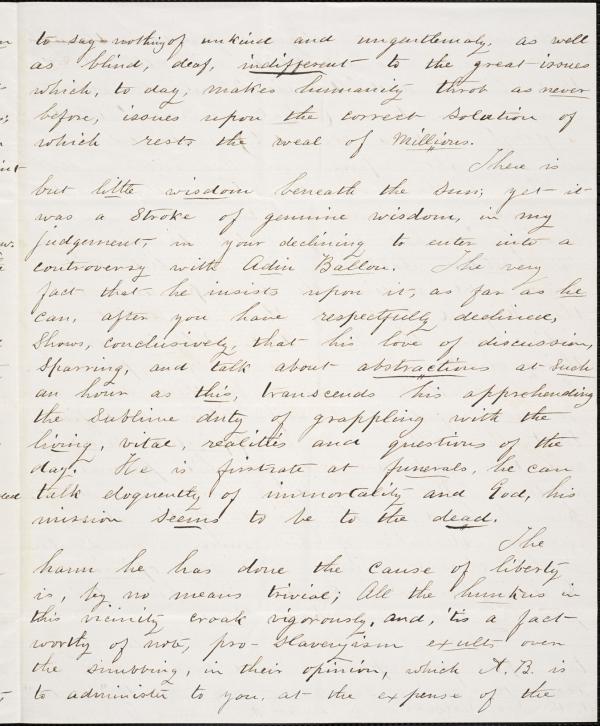 to say nothing of unkind and ungentlemaly, as well
as blind, deaf, indifferent to the great issues
which, to day, makes humanity throb as never
before; issues upon the correct Solution of
which rests the weal of Millions.
There is
but little wisdom beneath the Sun; yet it
was a Stroke of genuine wisdom, in my
judgement, in your declining to enter into a
controversy with Adin Ballou. The very
fact that he insists upon it, as far as he
can, after you have respectfully declined,
Shows, conclusively, that his love of discussion,
Sparring, and talk about abstractions at Such
an hour as this, transcends his apprehending
the Sublime duty of grappling with the
living, vital, realities and questions of the
day. He is firstrate at funerals, he can
talk eloquently of immortality and God, his
mission Seems to be to the dead.
The
harm he has done the cause of liberty
is, by no means trivial; All the hunkers in
this vicinity croak vigorously, and, 'tis a fact
worthy of note, pro-Slaveryism exults over
the snubbing, in their opinion, which A. B. is
to administer to you, at the expense of the